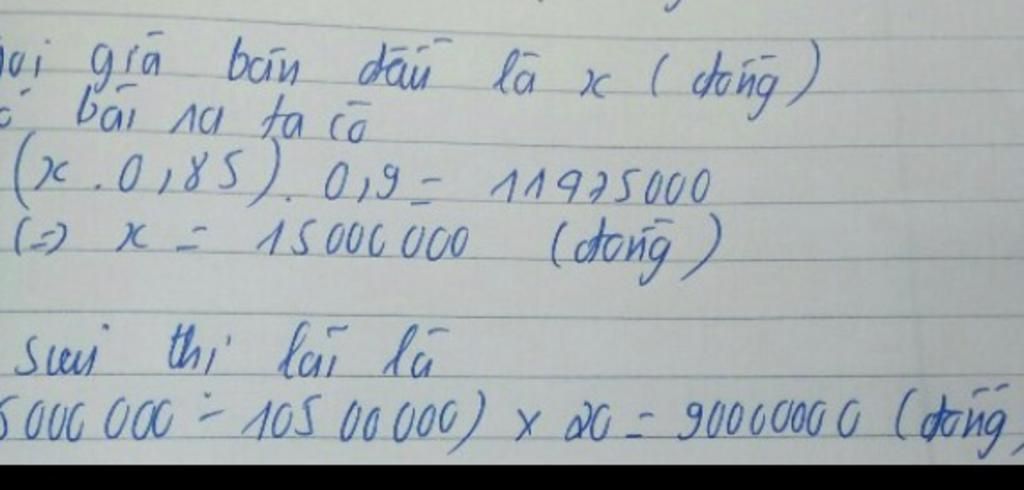 giá bán đầu là x (đồng)
bài ra ta có
(x . 0,85) . 0,9 = 11975000
(=) x = 15000000 (đồng)
thì lãi là
5000 000 - 105 00 000) x 20 = 90000000 (đồng